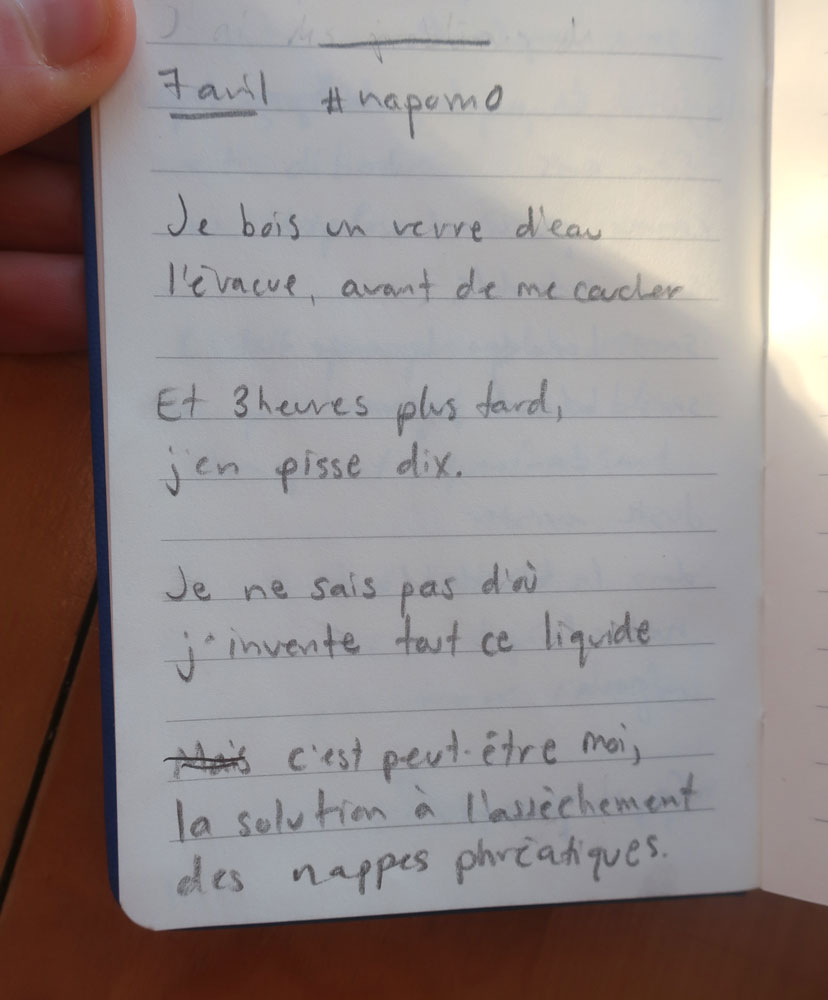 7 avril #napomo
Je bois un verre d'eau
l'évacue, avant de me coucher
Et 3 heures plus tard,
j'en pisse dix.
Je ne sais pas d'où
j'invente tout ce liquide
Mais c'est peut-être moi,
la solution à l'assèchement
des nappes phréatiques.